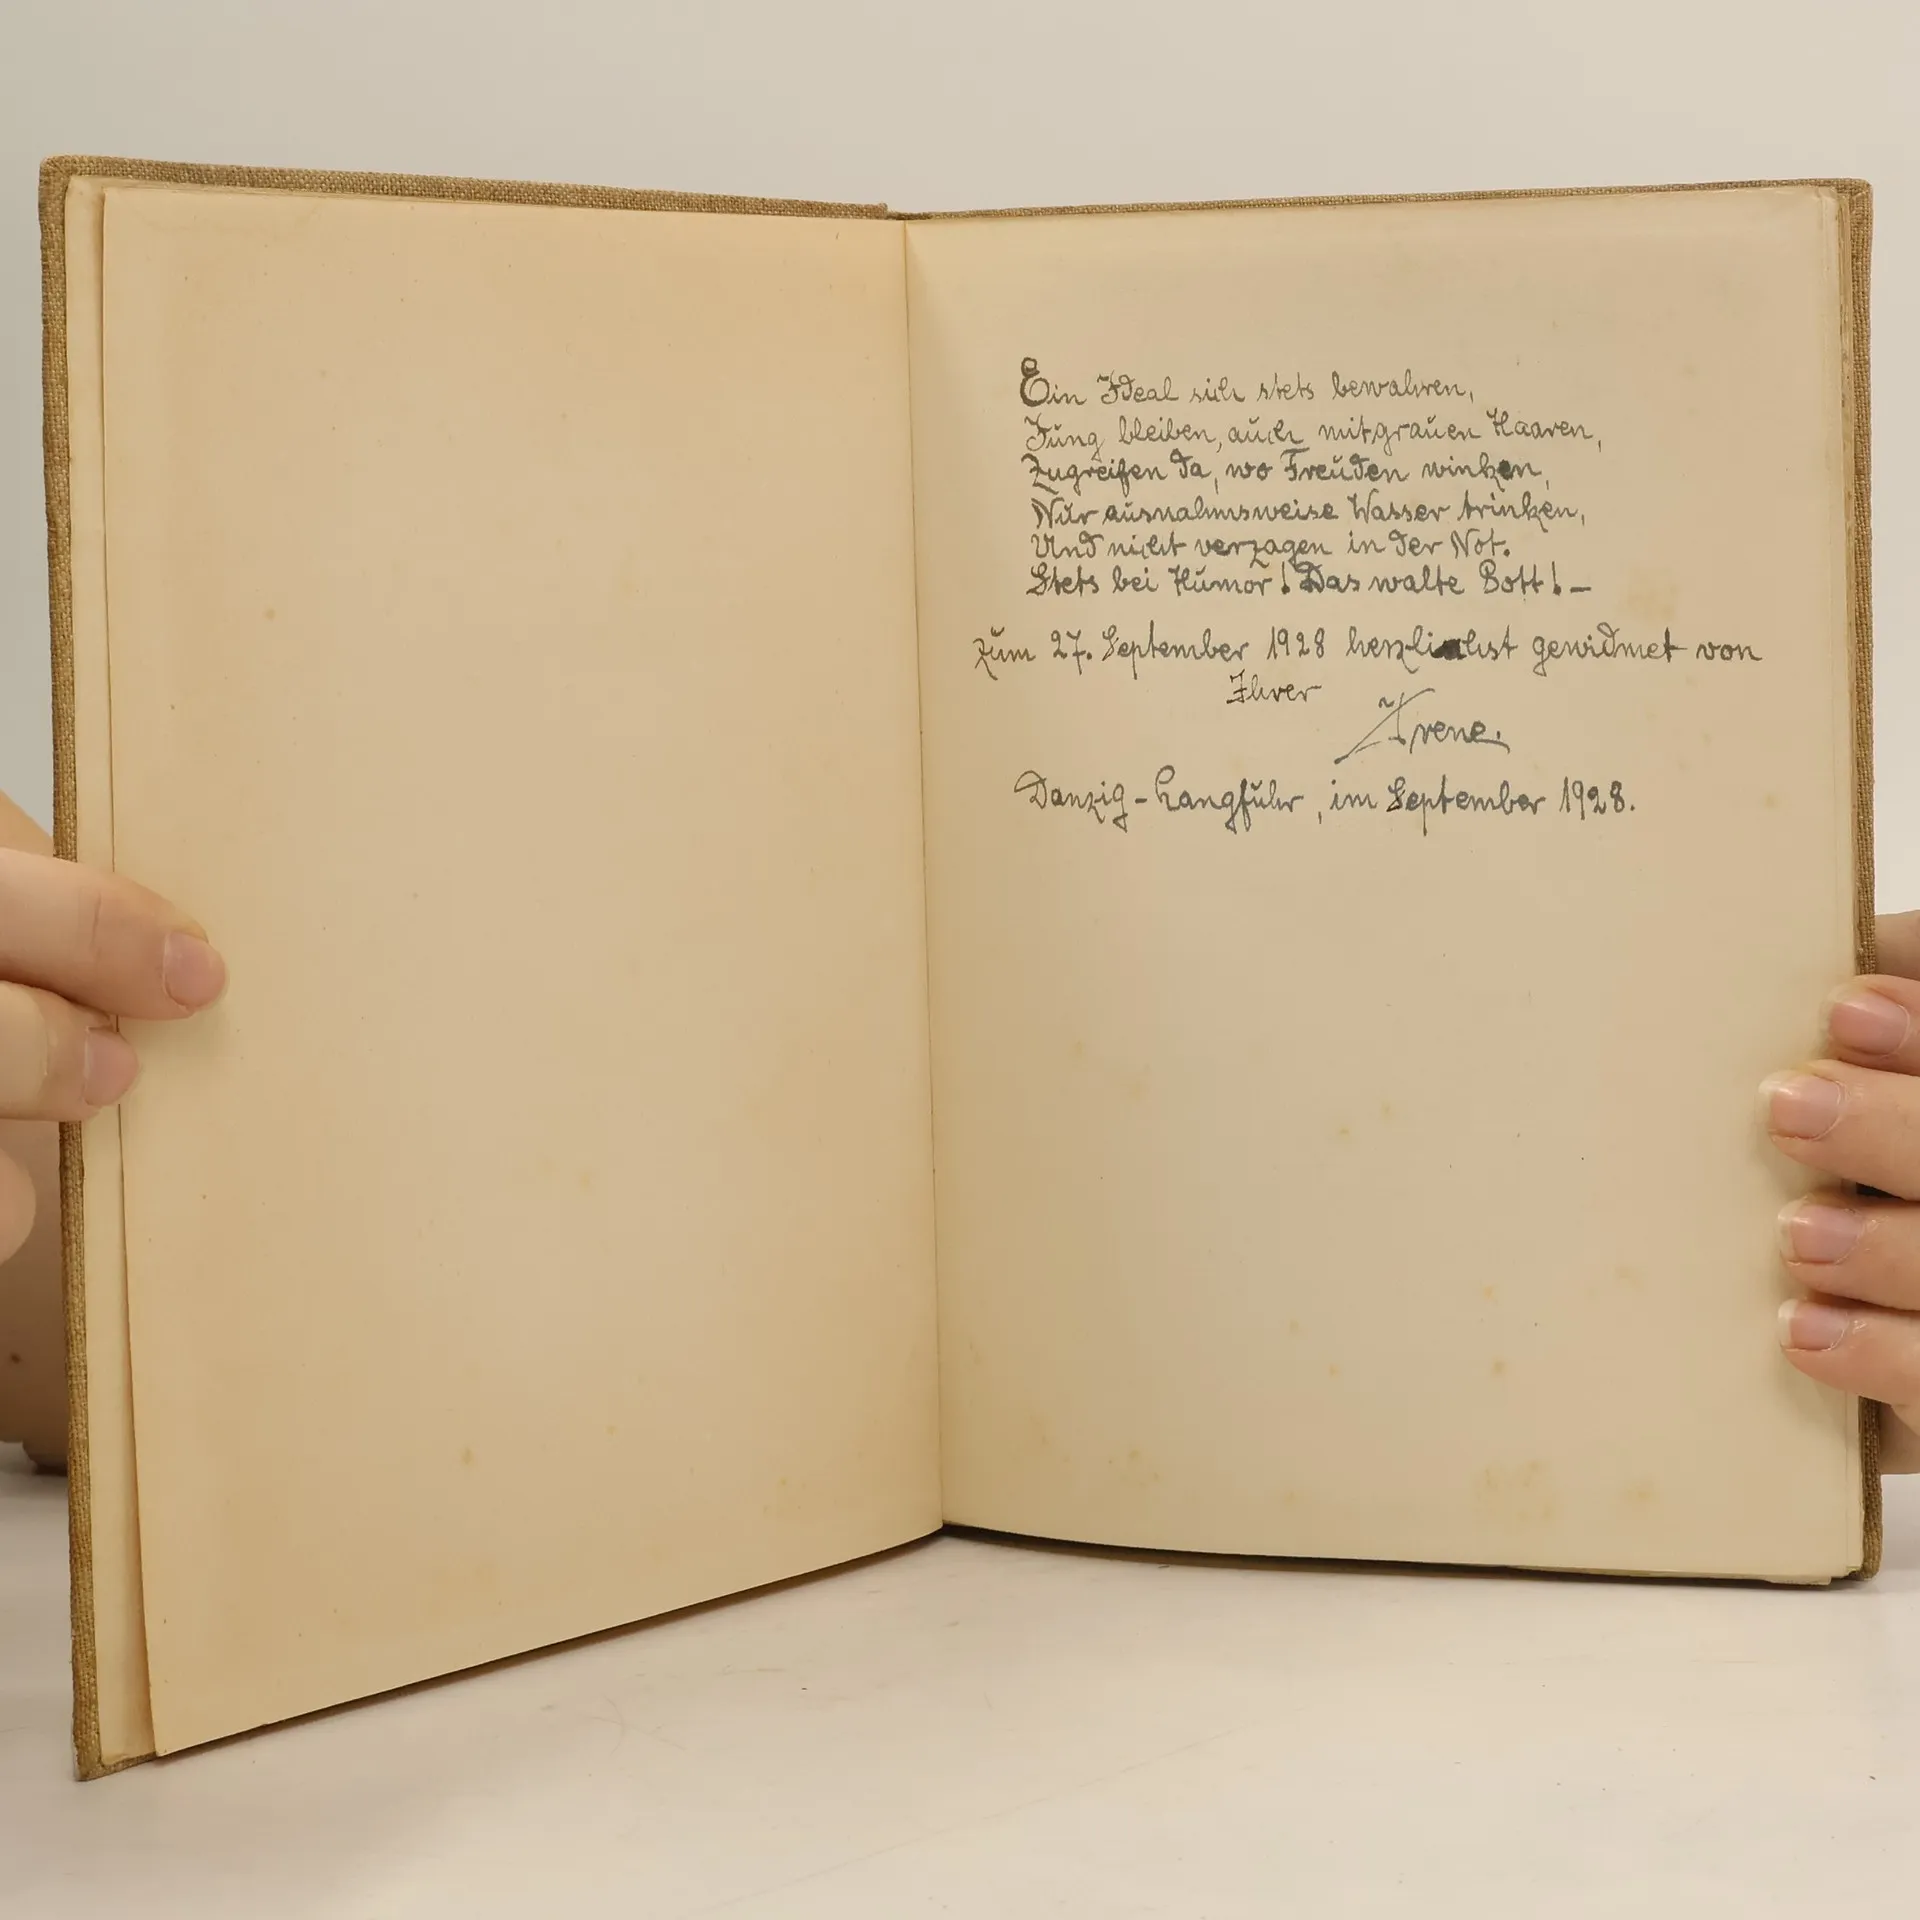 Ein Ideal sich stets bewahren,
Jung bleiben, auch mit grauen Haaren,
Zugreifen da, wo Freuden winken,
Nur ausnahmsweise Wasser trinken,
Und nicht verzagen in der Not.
Stets bei Humor! Das walte Gott! –
Zum 27. September 1928 herzlichst gewidmet von
Ihrer
Irene.
Danzig-Langfuhr, im September 1928.